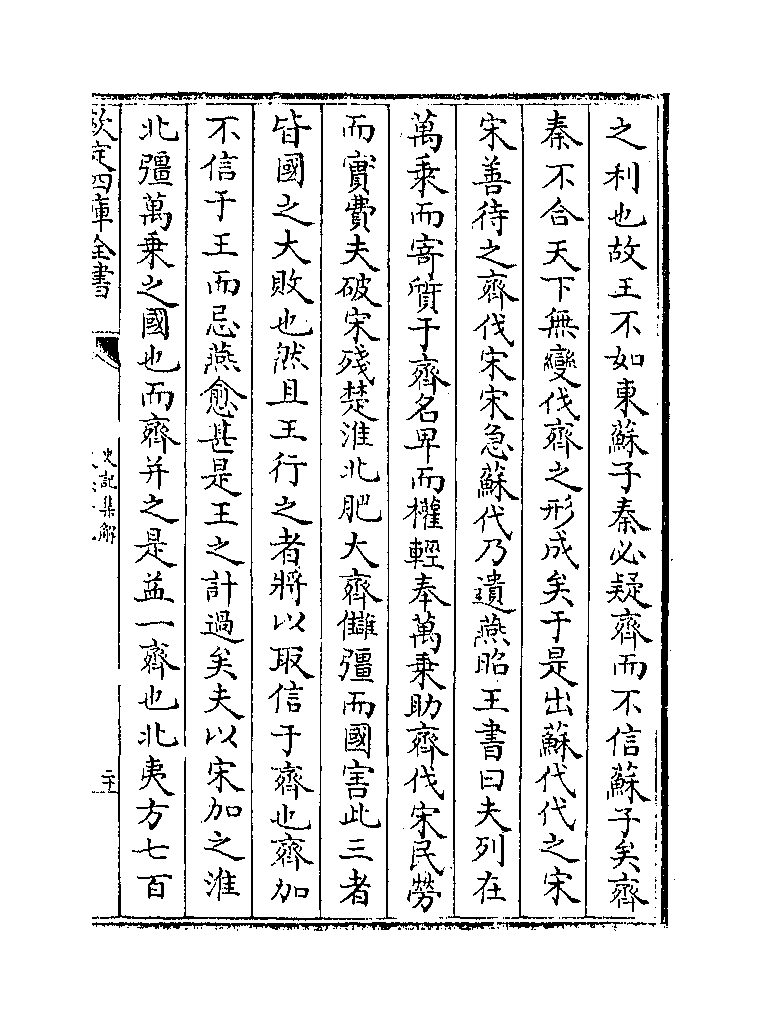 之利也故王不如東蘇子秦必疑齊而不信蘇子矣齊
秦不合天下無變伐齊之形成矣于是出蘇代代之宋
宋善待之齊伐宋宋急蘇代乃遺燕昭王書曰夫列在
萬乗而寄質于齊名卑而權輕奉萬乗助齊伐宋民勞
而實費夫破宋殘楚淮北肥大齊讎彊而國害此三者
皆國之大敗也然且王行之者將以取信于齊也齊加
不信于王而忌燕愈甚是王之計過矣夫以宋加之淮
北彊萬乗之國也而齊并之是益一齊也北夷方七百
欽定四庫全書
史記集解